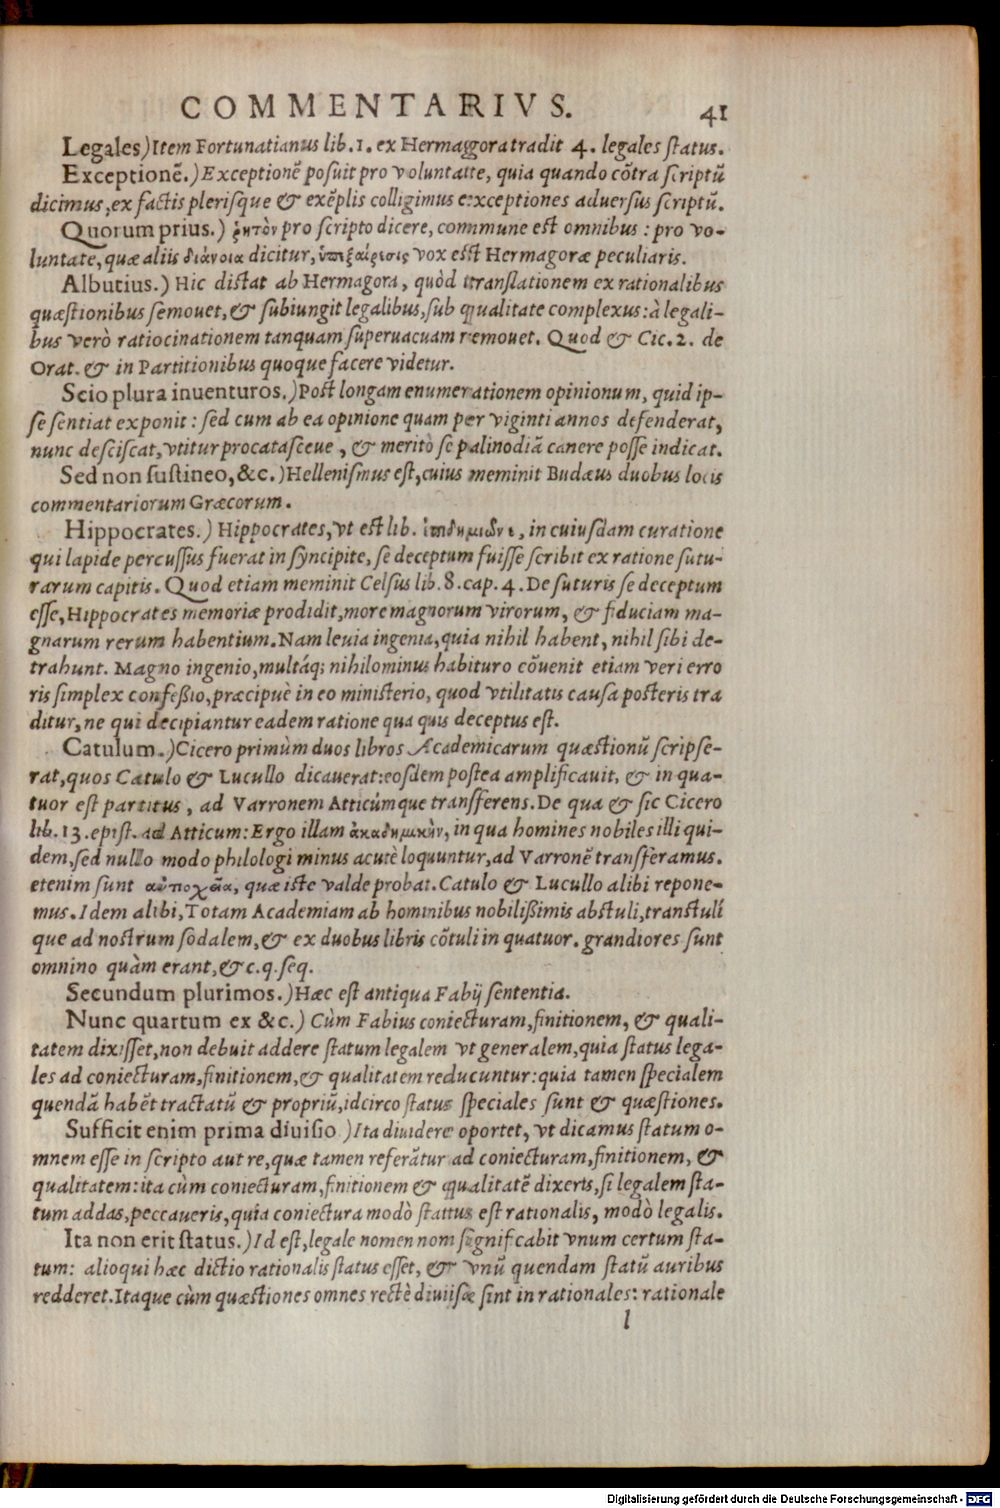 COMMENTARIVS. 41
Legales) Item Fortunatianus lib. 1. ex Hermagora tradit 4. legales status.
Exceptionẽ.) Exceptionẽ posuit pro voluntate, quia quando cõtra scriptũ
dicimus, ex factis plerisque & exẽplis colligimus exceptiones aduersus scriptũ.
Quorum prius.) ῥητὸν pro scripto dicere, commune est omnibus: pro vo-
luntate, quæ aliis διάνοια dicitur, ὑπεξαίρεσις vox est Hermagoræ peculiaris.
Albutius.) Hic distat ab Hermagora, quòd translationem ex rationalibus
quæstionibus semouet, & subiungit legalibus, sub qualitate complexus: à legali-
bus verò ratiocinationem tanquam superuacuam remouet. Quod & Cic. 2. de
Orat. & in Partitionibus quoque facere videtur.
Scio plura inuenturos.) Post longam enumerationem opinionum, quid ip-
se sentiat exponit: sed cum ab ea opinione quam per viginti annos defenderat,
nunc desciscat, vtitur procatasceue, & meritò se palinodiã canere posse indicat.
Sed non sustineo, &c.) Hellenismus est, cuius meminit Budæus duobus locis
commentariorum Græcorum.
Hippocrates.) Hippocrates, vt est lib. ἐπιδημιῶν ε, in cuiusdam curatione
qui lapide percussus fuerat in syncipite, se deceptum fuisse scribit ex ratione sutu-
rarum capitis. Quod etiam meminit Celsus lib. 8. cap. 4. De suturis se deceptum
esse, Hippocrates memoriæ prodidit, more magnorum virorum, & fiduciam ma-
gnarum rerum habentium. Nam leuia ingenia, quia nihil habent, nihil sibi de-
trahunt. Magno ingenio, multáq; nihilominus habituro cõuenit etiam veri erro
ris simplex confeßio, præcipuè in eo ministerio, quod vtilitatis causa posteris tra
ditur, ne qui decipiantur eadem ratione qua quis deceptus est.
Catulum.) Cicero primùm duos libros Academicarum quæstionũ scripse-
rat, quos Catulo & Lucullo dicauerat: eosdem postea amplificauit, & in qua-
tuor est partitus, ad Varronem Atticúmque transferens. De qua & sic Cicero
lib. 13. epist. ad Atticum: Ergo illam ἀκαδημικὴν, in qua homines nobiles illi qui-
dem, sed nullo modo philologi minus acutè loquuntur, ad Varronẽ transferamus.
etenim sunt quæ iste valde probat. Catulo & Lucullo alibi repone-
mus. Idem alibi, Totam Academiam ab hominibus nobilißimis abstuli, transtulí
que ad nostrum sodalem, & ex duobus libris cõtuli in quatuor. grandiores sunt
omnino quàm erant, & c. q. seq.
Secundum plurimos.) Hæc est antiqua Fabij sententia.
Nunc quartum ex &c.) Cùm Fabius coniecturam, finitionem, & quali-
tatem dixisset, non debuit addere statum legalem vt generalem, quia status lega-
les ad coniecturam, finitionem, & qualitatem reducuntur: quia tamen specialem
quendã habẽt tractatũ & propriũ, idcirco status speciales sunt & quæstiones.
Sufficit enim prima diuisio) Ita diuidere oportet, vt dicamus statum o-
mnem esse in scripto aut re, quæ tamen referãtur ad coniecturam, finitionem, &
qualitatem: ita cùm coniecturam, finitionem & qualitatẽ dixeris, si legalem sta-
tum addas, peccaueris, quia coniectura modò status est rationalis, modò legalis.
Ita non erit status.) Id est, legale nomen non significabit vnum certum sta-
tum: alioqui hæc dictio rationalis status esset, & vnũ quendam statũ auribus
redderet. Itaque cùm quæstiones omnes rectè diuisæ sint in rationales: rationale
l
Digitalisierung gefördert durch die Deutsche Forschungsgemeinschaft - DFG